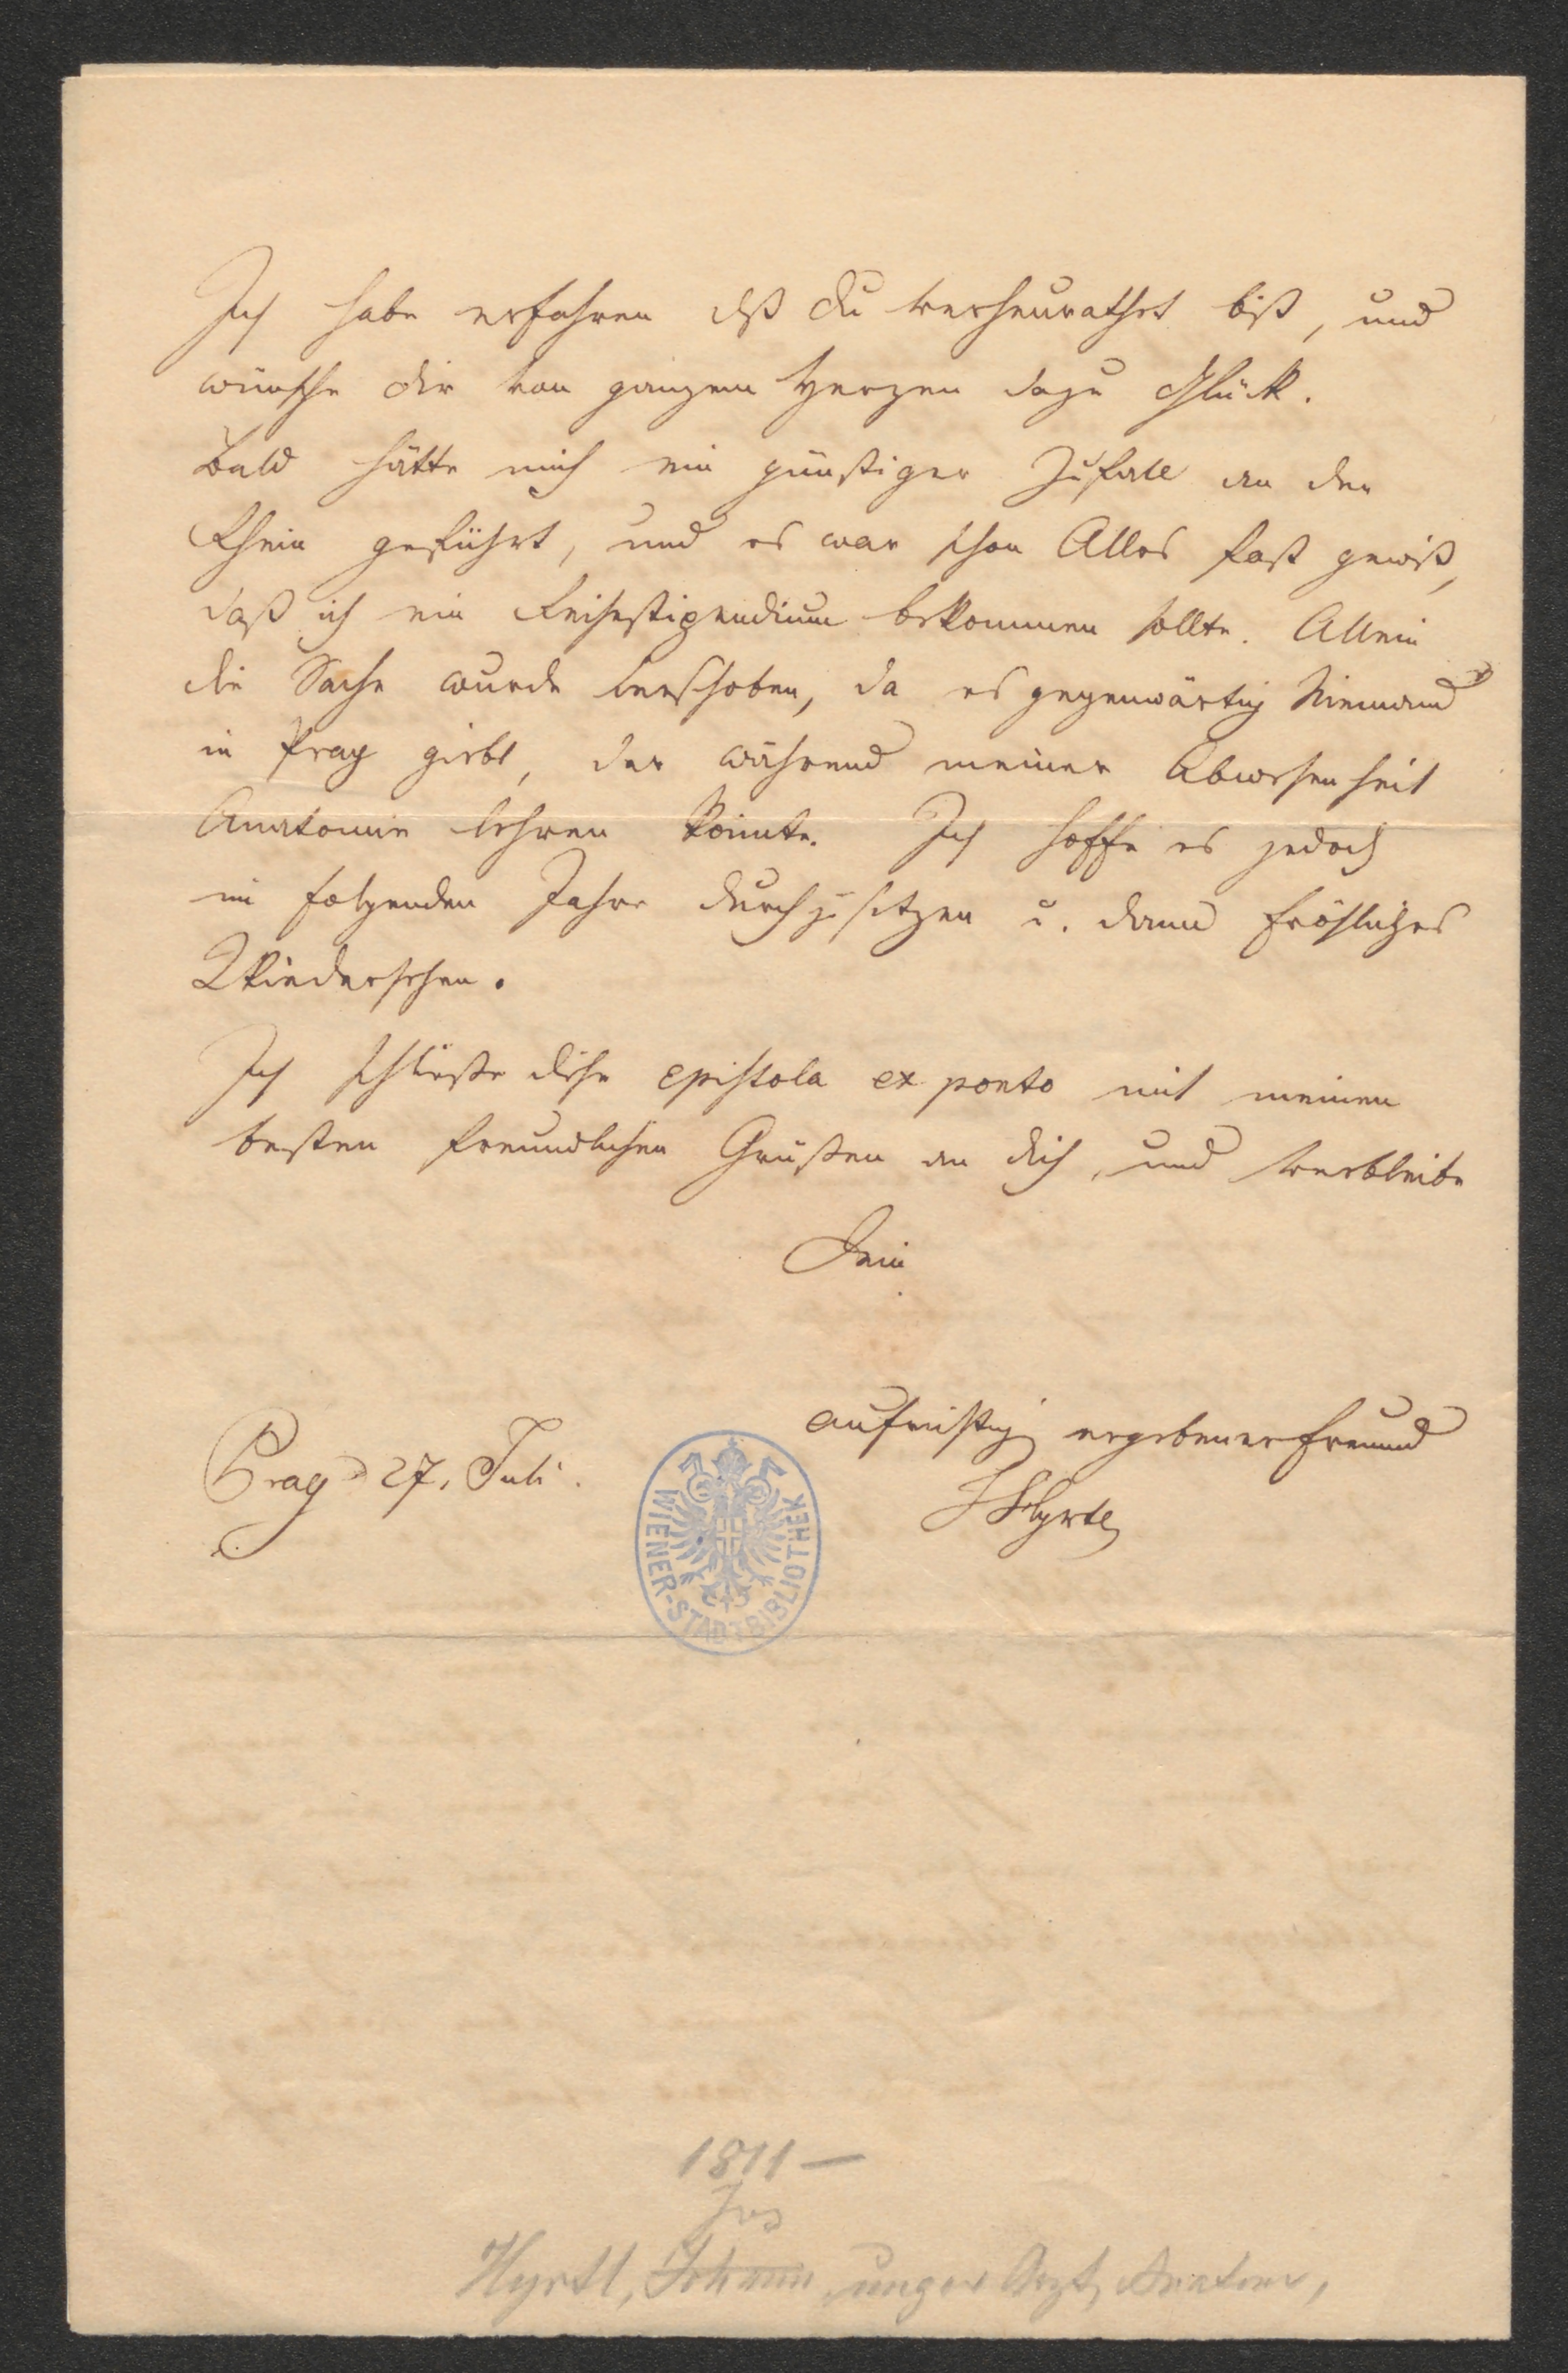 Ich habe erfahren dß du verheurathet bist, und
wünsche dir von ganzem Herzen dazu Glück.
Bald hätte mich ein günstiger Zufall an den
Rhein geführt, und es war schon Alles fast gewiß,
daß ich ein Reisestipendium bekommen sollte. Allein
die Sache wurde verschoben, da es gegenwärtig Niemand
in Prag giebt, der während meiner Abwesenheit
Anatomie lehren könnte. Ich hoffe es jedoch
im folgenden Jahre durchzusetzen u. dann fröhliches
Wiedersehen.
Ich schließe diese epistola ex ponto mit meinen
besten freundlichen Grüßen an dich, und verbleibe
Dein
aufrichtig ergebener Freund
Prag 27. Juli.
J Hyrtl
WIENER-STADTBIBLIOTHEK
1811 —
Jos
Hyrtl, Johann, ungar Arzt, Anatom,